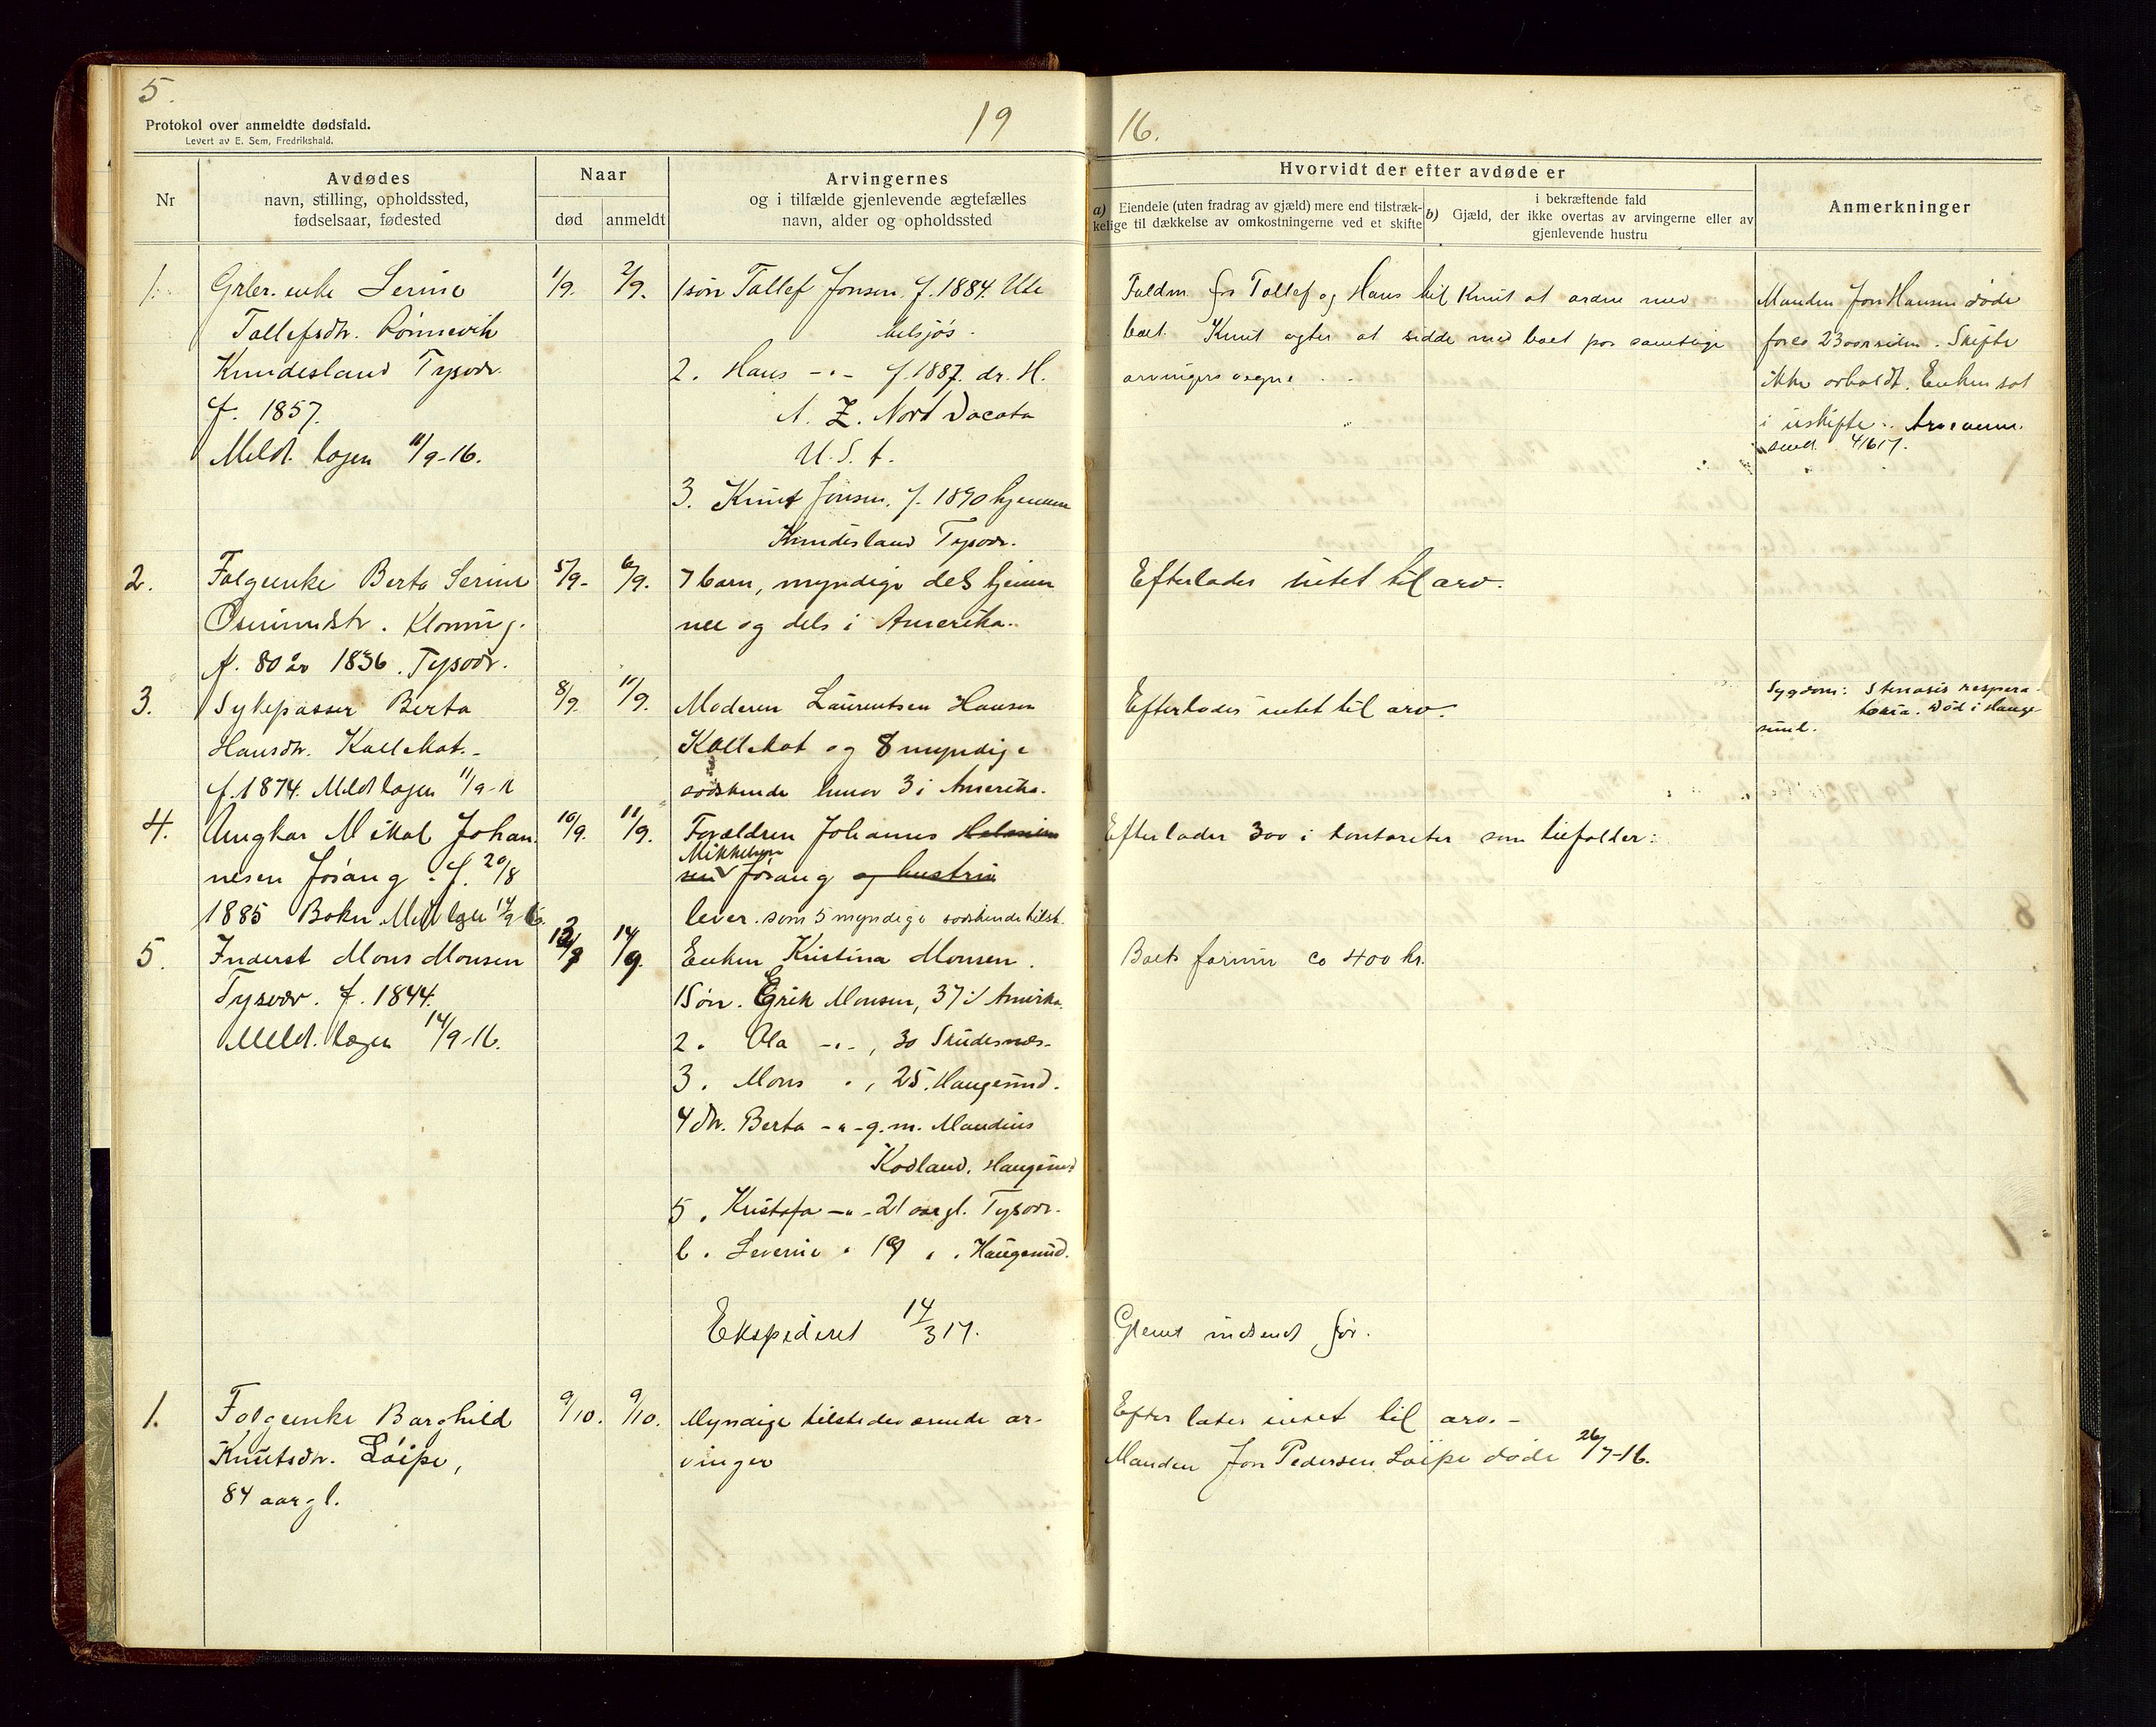 5.
Protokol over anmeldte dødsfald.
Levert av E. Sem, Fredrikshald.
19
16.
Nr
Avdødes
navn, stilling, opholdssted,
fødselsaar, fødested
Naar
død
anmeldt
Arvingernes
og i tilfælde gjenlevende ægtefælles
navn, alder og opholdssted
Hvorvidt der efter avdøde er
a) Eiendele (uten fradrag av gjæld) mere end tilstræk-
kelige til dækkelse av omkostningerne ved et skifte
i bekræftende fald
b) Gjæld, der ikke overtas av arvingerne eller av
gjenlevende hustru
Anmerkninger
1. Grbr. enke Serine
Tollefsdtr. Rönnevik
Knudesland Tysvær
f. 1857.
Meldt. lagen 11/9-16.
1/9. 2/9.
1 søn Tollef Jonsen f. 1884. Ute
tilsjös.
2. Hans -"- f. 1887. dr. H.
A. Z. Nord Dacota
U.S. A.
3. Knut Jonsen. f. 1890 hjemme
Knudesland Tysvær.
Fuldm. fra Tollef og Hans til Knut at ordne med
boet. Knut agter at sidde med boet paa samtlige
arvingers vegne.
Manden Jon Hansen døde
for ca 23 aar siden. Skifte
ikke avholdt. Enken sat
i uskifte.
4/6 17.
2. Folgeenke Berta Serine
Osmundsdtr. Kloning.
f. 80 år 1836. Tysvær.
5/9- 6/9.
7 barn, myndige dels hjem
me og dels i Amerika.
Efterlader intet til arv.
3. Sykepasser Berta
Hansdtr. Kallekot.-
f. 1874. Meldt lagen 11/9-16
8/9. 11/9.
Moderen Laurentsen Hansen
Kallekot og 8 myndige
sødskende hvor 3 i Amerika.
Efterlades intet til arv.
Sygdom: Stenosis respira-
toria. Død i Hauge
sund.
4. Ungkar Mikal Johan
nesen Jøsang. f. 20/8
1885 Bokn Meldt lagen 14/9 16.
10/9. 11/9.
Forældren Johannes
Mikkelsen
Jøsang og hustru
lever. som 5 myndige sødskende tilst.
Efterlader 300 i kontanter som tilfalder:
5. Inderst Mons Monsen
Tysvær. f. 1844.
Meldt. lagen 14/9-16.
14/9.
Enken Kristina Monsen.
1 Søn. Erik Monsen, 37 i Amerika.
2. Ola -"-, 30 Skudesnæs-
3. Mons ", 25. Haugesund.
4 dtr. Berta -"- g.m. Maudius
Kodland. Haugesund
5. Kristofa -"- 21 aar gl. Tysvær.
6. Severine " 19 " . Haugesund.
Boets formue ca 400 kr.
Ekspederet 14/3 17.
Glemt indsendt før.
1. Folgeenke Borghild
Knutsdtr. Løipe,
84 aar gl.
9/10. 9/10.
Myndige tilstedeværende ar-
vinger
Efterlater intet til arv.-
Manden Jon Pedersen Løipe døde 26/7-16.